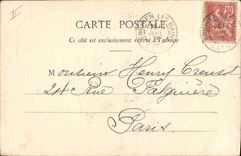 II
CARTE POSTALE
Ce côté est exclusivement réservé à l'adresse
ENGHIEN LES BAINS
10
Monsieur Henry Creusot
24 Rue Falguière
Paris